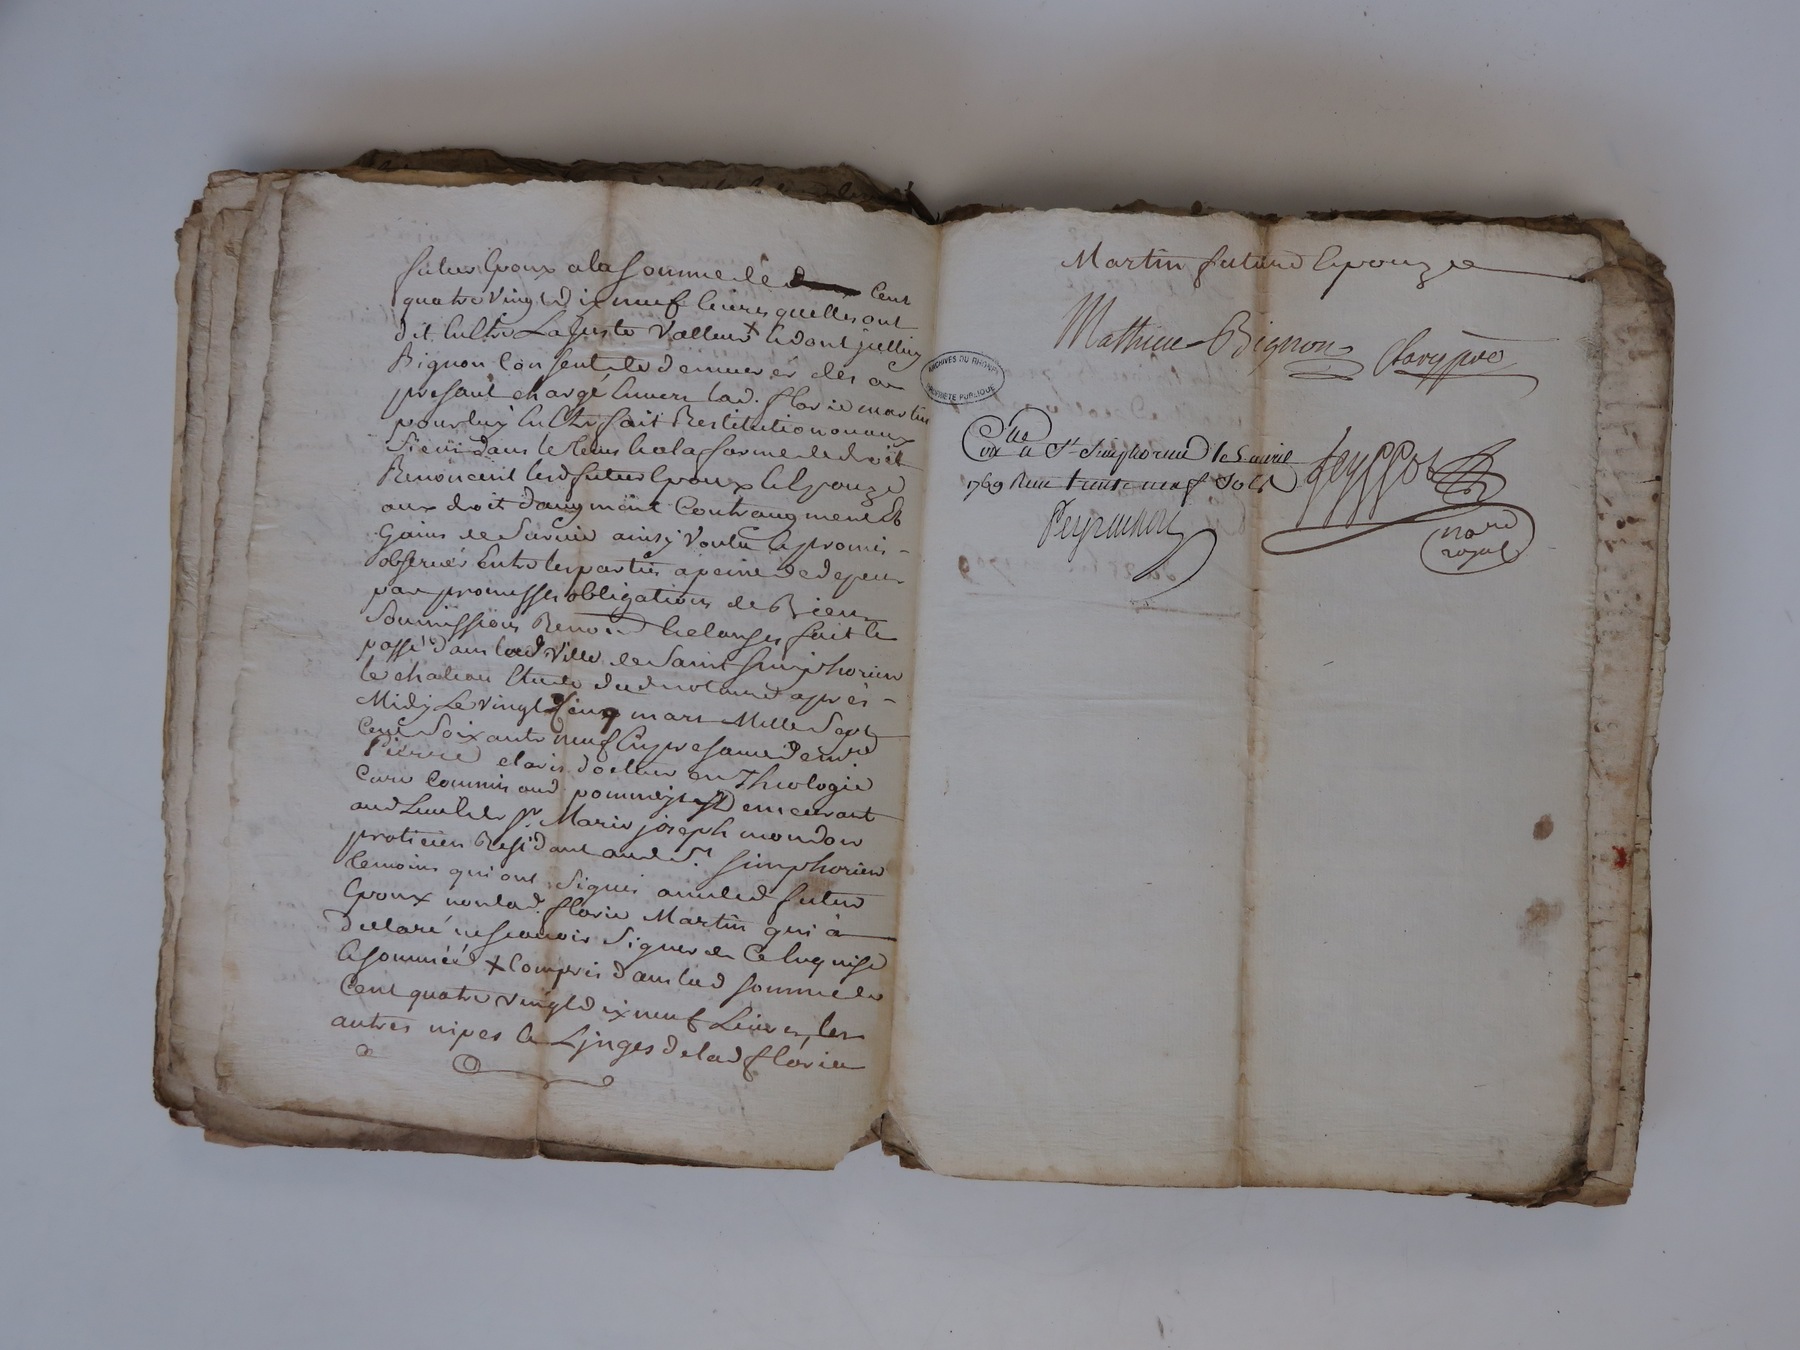 futur Epoux a la somme de d cent
quatre vingt dix neuf livres quelles ont
dit Estre La juste Valleur + Et dont jcelluy
Bignon Consent de demeurer dès a
present chargé Envers lad. florie martin
pour luy En Etre fait Restitution ou aux
siens dans le tems Et a la forme de droit
Renoncent lesd futur Epoux Et Epouze
aux droit d'augment Contraugment Et
Gains de survie ainsy Voulu Et promis
observer Entre les parties a peine de depens
par promesses obligations de Biens
soumissions Renon Et clauses fait Et
passé dans lad Ville de Saint simphorien
le chateau Etude dud notaire après
Midy Le vingt Cinq mars Mille Sept
Cent Soixante neuf En presance de mre
Pierre claris docteur en Theologie
Curé Commis aud pommeys y demeurant
aud Lieu Et de sr. Marie joseph mondon
praticien Residant aud St. simphorien
temoins qui ont signés avec led futur
Epoux non lad. florie Martin qui à
declaré ne scavoir signer de Ce Enquise
Et sommée + Compris dans lad somme de
Cent quatre vingt dix neuf Livres, les
autres nipes Et Ljnges de lad florie
Martin future Epouze
Mathieu Bignon Clary ptre
ARCHIVES DU RHONE
PROPRIÉTÉ PUBLIQUE
Clle a St. Simphorien le 5 avril
1769 Reçu trente neuf sols
Peyrachon
feyssot
nore
royal